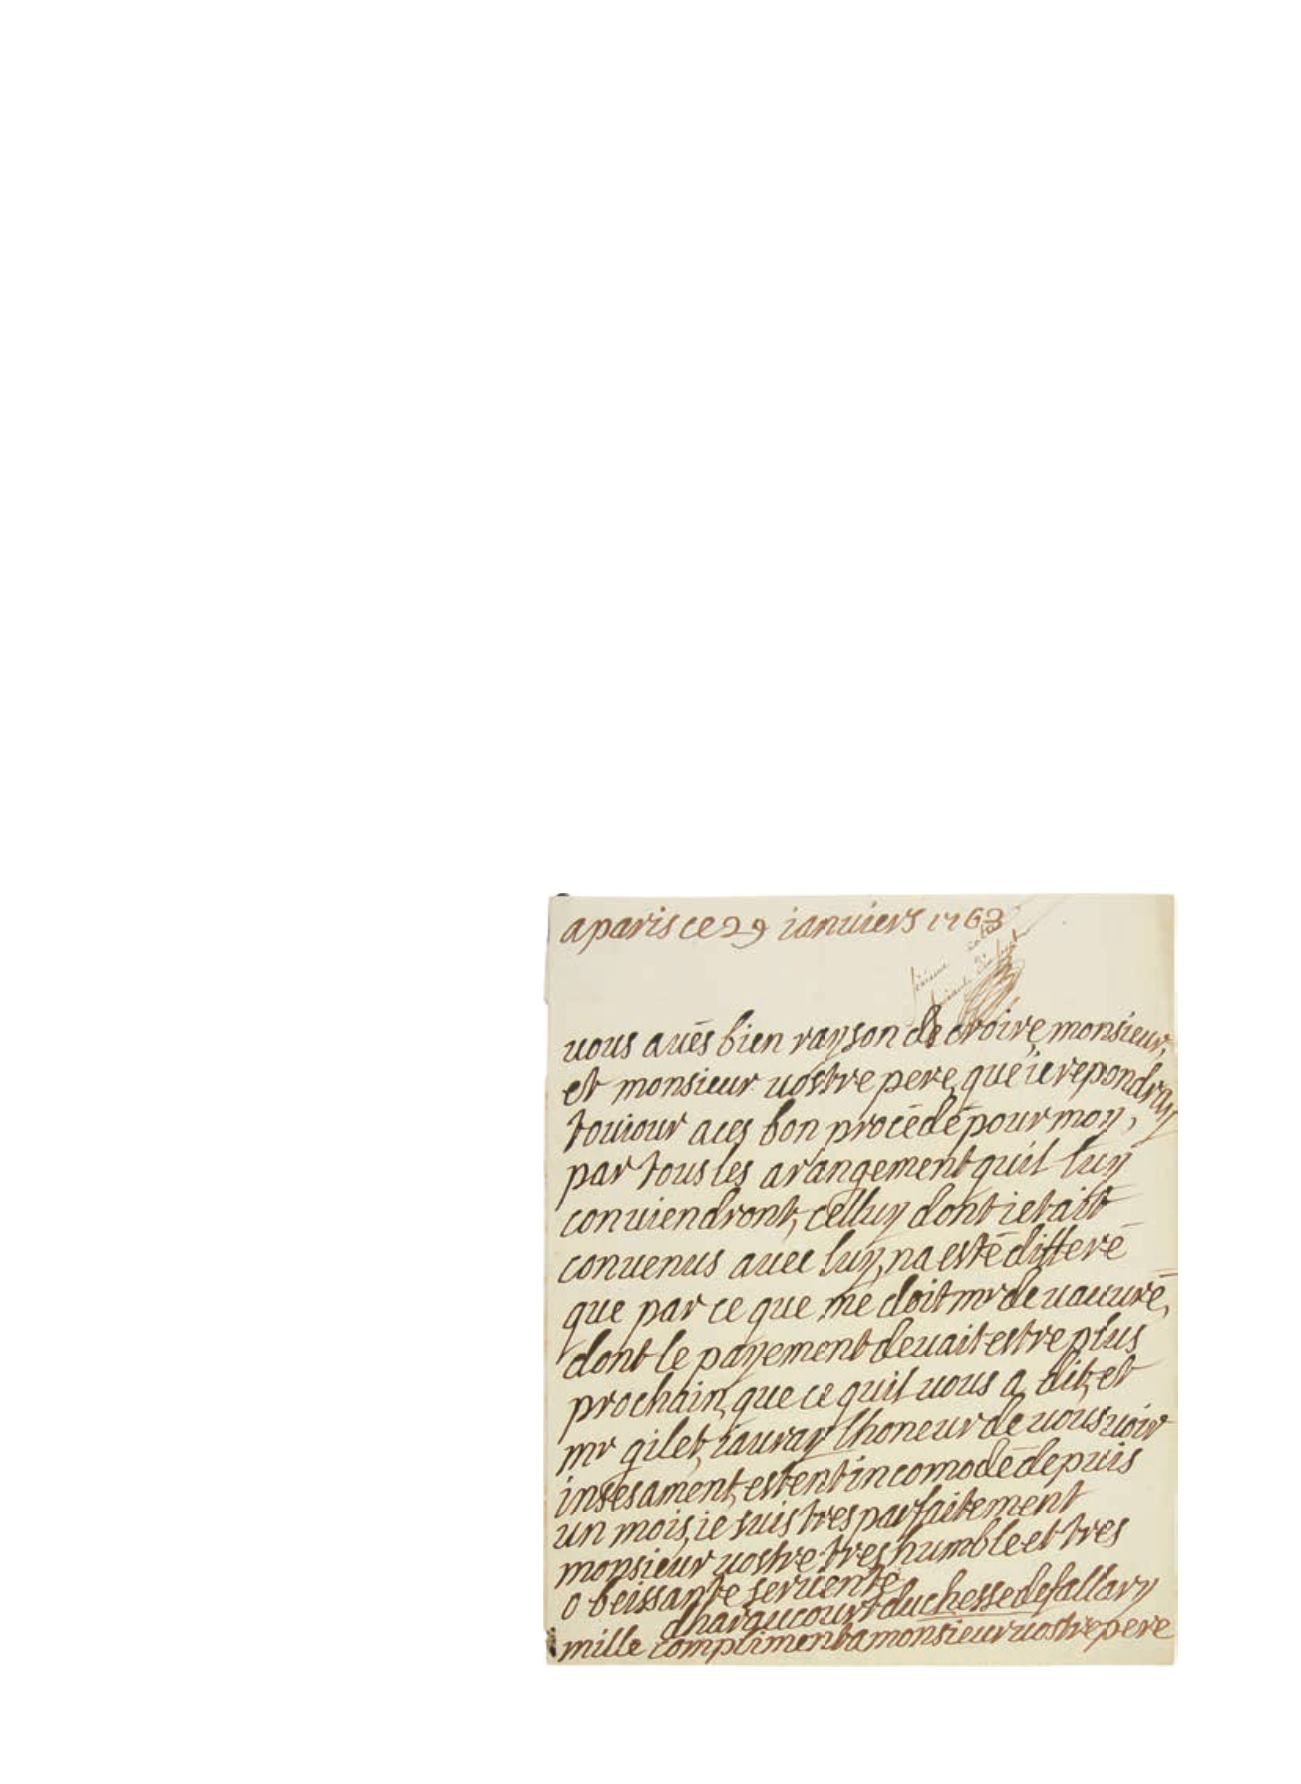 a paris ce 29 ianuiers 1763
uous aués bien rayson de croire monsieur,
et monsieur uostre pere, que ie repondray
touiour a ces bon procédé pour moy,
par tous les arangement quil luy
conuiendront, celluy dont ietait
conuenus auec luy, na esté differé
que par ce que me doit mr de uauuré,
dont le payement deuait estre plus
prochain, que ce quil uous a dit, et
mr gilet, iauray lhoneur de uous uoir
insesament, estent incomodé depuis
un mois, ie suis tres parfaitement
monsieur uostre tres humble et tres
o beissante seruente
dharaucourt duchesse de fallary
mille compliment a monsieur uostre pere